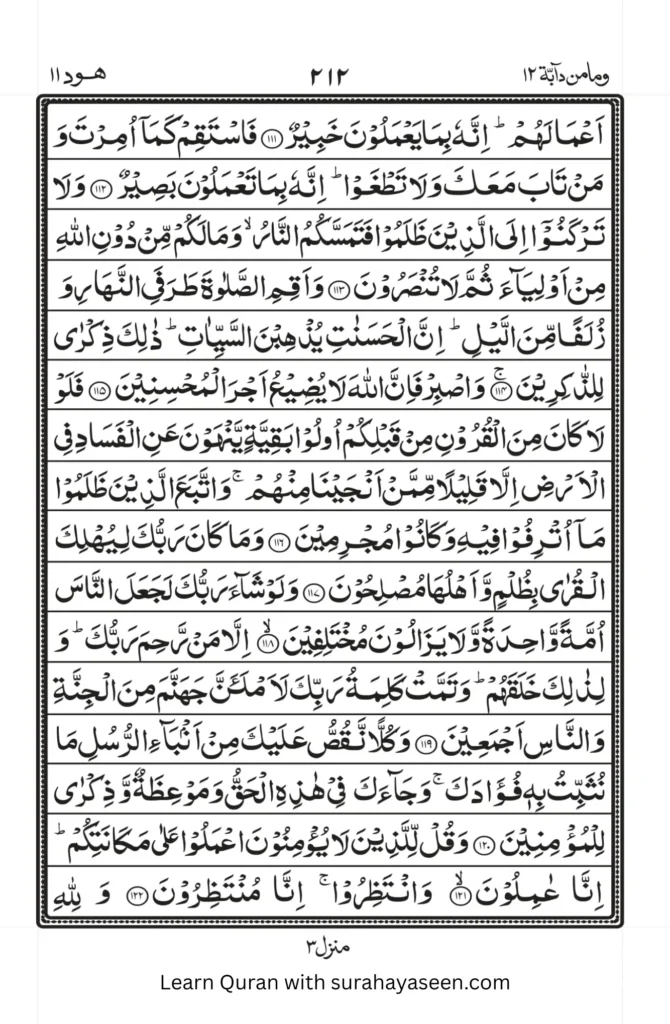 ومامن دآبّة ١٢
٢١٢
هود ١١
اَعْمَالَهُمْ ؕ اِنَّهٗ بِمَا یَعْمَلُوْنَ خَبِیْرٌ ﴿۱۱۱﴾ فَاسْتَقِمْ كَمَاۤ اُمِرْتَ وَ
مَنْ تَابَ مَعَكَ وَلَا تَطْغَوْا ؕ اِنَّهٗ بِمَا تَعْمَلُوْنَ بَصِیْرٌ ﴿۱۱۲﴾ وَلَا
تَرْكَنُوْۤا اِلَی الَّذِیْنَ ظَلَمُوْا فَتَمَسَّكُمُ النَّارُ ۙ وَمَا لَكُمْ مِّنْ دُوْنِ اللّٰهِ
مِنْ اَوْلِیَآءَ ثُمَّ لَا تُنْصَرُوْنَ ﴿۱۱۳﴾ وَاَقِمِ الصَّلٰوةَ طَرَفَیِ النَّهَارِ وَ
زُلَفًا مِّنَ الَّیْلِ ؕ اِنَّ الْحَسَنٰتِ یُذْهِبْنَ السَّیِّاٰتِ ؕ ذٰلِكَ ذِكْرٰی
لِلذّٰكِرِیْنَ ۚ﴿۱۱۴﴾ وَاصْبِرْ فَاِنَّ اللّٰهَ لَا یُضِیْعُ اَجْرَ الْمُحْسِنِیْنَ ﴿۱۱۵﴾ فَلَوْ
لَا كَانَ مِنَ الْقُرُوْنِ مِنْ قَبْلِكُمْ اُولُوْا بَقِیَّةٍ یَّنْهَوْنَ عَنِ الْفَسَادِ فِی
الْاَرْضِ اِلَّا قَلِیْلًا مِّمَّنْ اَنْجَیْنَا مِنْهُمْ ۚ وَاتَّبَعَ الَّذِیْنَ ظَلَمُوْا
مَاۤ اُتْرِفُوْا فِیْهِ وَكَانُوْا مُجْرِمِیْنَ ﴿۱۱۶﴾ وَمَا كَانَ رَبُّكَ لِیُهْلِكَ
الْقُرٰی بِظُلْمٍ وَّاَهْلُهَا مُصْلِحُوْنَ ﴿۱۱۷﴾ وَلَوْ شَآءَ رَبُّكَ لَجَعَلَ النَّاسَ
اُمَّةً وَّاحِدَةً وَّلَا یَزَالُوْنَ مُخْتَلِفِیْنَ ۙ﴿۱۱۸﴾ اِلَّا مَنْ رَّحِمَ رَبُّكَ ؕ وَ
لِذٰلِكَ خَلَقَهُمْ ؕ وَتَمَّتْ كَلِمَةُ رَبِّكَ لَاَمْلَـَٔنَّ جَهَنَّمَ مِنَ الْجِنَّةِ
وَالنَّاسِ اَجْمَعِیْنَ ﴿۱۱۹﴾ وَكُلًّا نَّقُصُّ عَلَیْكَ مِنْ اَنْۢبَآءِ الرُّسُلِ مَا
نُثَبِّتُ بِهٖ فُؤَادَكَ ۚ وَجَآءَكَ فِیْ هٰذِهِ الْحَقُّ وَمَوْعِظَةٌ وَّذِكْرٰی
لِلْمُؤْمِنِیْنَ ﴿۱۲۰﴾ وَقُلْ لِّلَّذِیْنَ لَا یُؤْمِنُوْنَ اعْمَلُوْا عَلٰی مَكَانَتِكُمْ ؕ
اِنَّا عٰمِلُوْنَ ۙ﴿۱۲۱﴾ وَانْتَظِرُوْا ۚ اِنَّا مُنْتَظِرُوْنَ ﴿۱۲۲﴾ وَلِلّٰهِ
منزل ٣
Learn Quran with surahayaseen.com